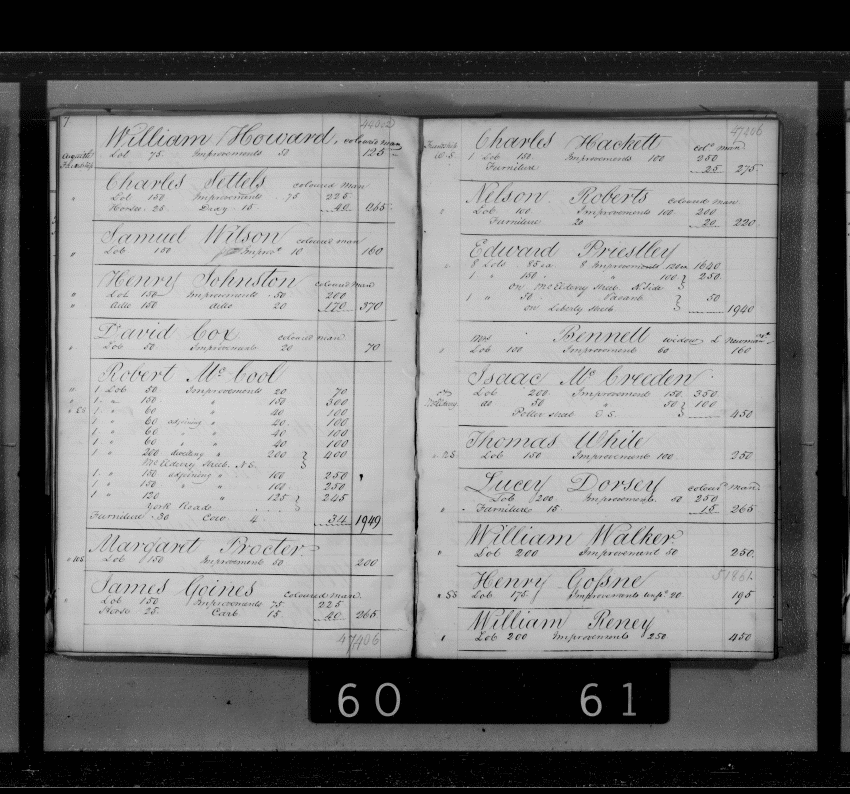 7 44002
William Howard, coloured man
August Friendship Lot 75 Improvements 50 125
Charles Settels coloured man
" Lot 150 Improvements 75 225
Horse 25 Dray 15 40 265
Samuel Wilson coloured man
" Lot 150 Improvts 10 160
Henry Johnston coloured man
" Lot 150 Improvements 50 200
" ditto 150 ditto 20 170 370
David Cox coloured man
" Lot 50 Improvements 20 70
Robert McCool
" 1 Lot 50 Improvements 20 70
" 1 " 150 " 150 300
1 " 60 " 40 100
1 " 60 adjoining " 40 100
1 " 60 " " 40 100
1 " 60 " " 40 100
1 " 200 dwelling " 200 } 400
McElderry Street N.S.
1 " 150 adjoining " 100 250
1 " 150 " " 100 250
1 " 120 " 125 } 245
York Road
Furniture 30 Cow 4 34 1949
Margaret Procter
Lot 150 Improvement 50 200
James Goines coloured man
" Lot 150 Improvements 75 225
Horse 25 Cart 15 40 265
47406
47406
Charles Hackett cold man
Friendship 1 Lot 150 Improvements 100 250
Furniture 25 275
Nelson Roberts coloured man
" Lot 100 Improvements 100 200
Furniture 20 20 220
Edward Priestley
8 Lots 85 ea 8 Improvements 120 ea 1640
1 " 150 " 100 } 250
on McElderry Street N. Side
1 " 50 Vacant } 50
on Liberty Street 1940
Mrs Bennett widow
" Lot 100 Improvements 60 160
Isaac McCreeden
Lot 200 Improvements 150 350
do 50 " 50 } 100
Potter Street E.S. 450
Thomas White
Lot 150 Improvements 100 250
Lucey Dorsey coloured man
Lot 200 Improvements 50 250
" Furniture 15 15 265
William Walker
" Lot 200 Improvement 50 250
51861
Henry Gosne
Lot 175 Improvements 20 195
William Reney
" Lot 200 Improvements 250 450
60 61